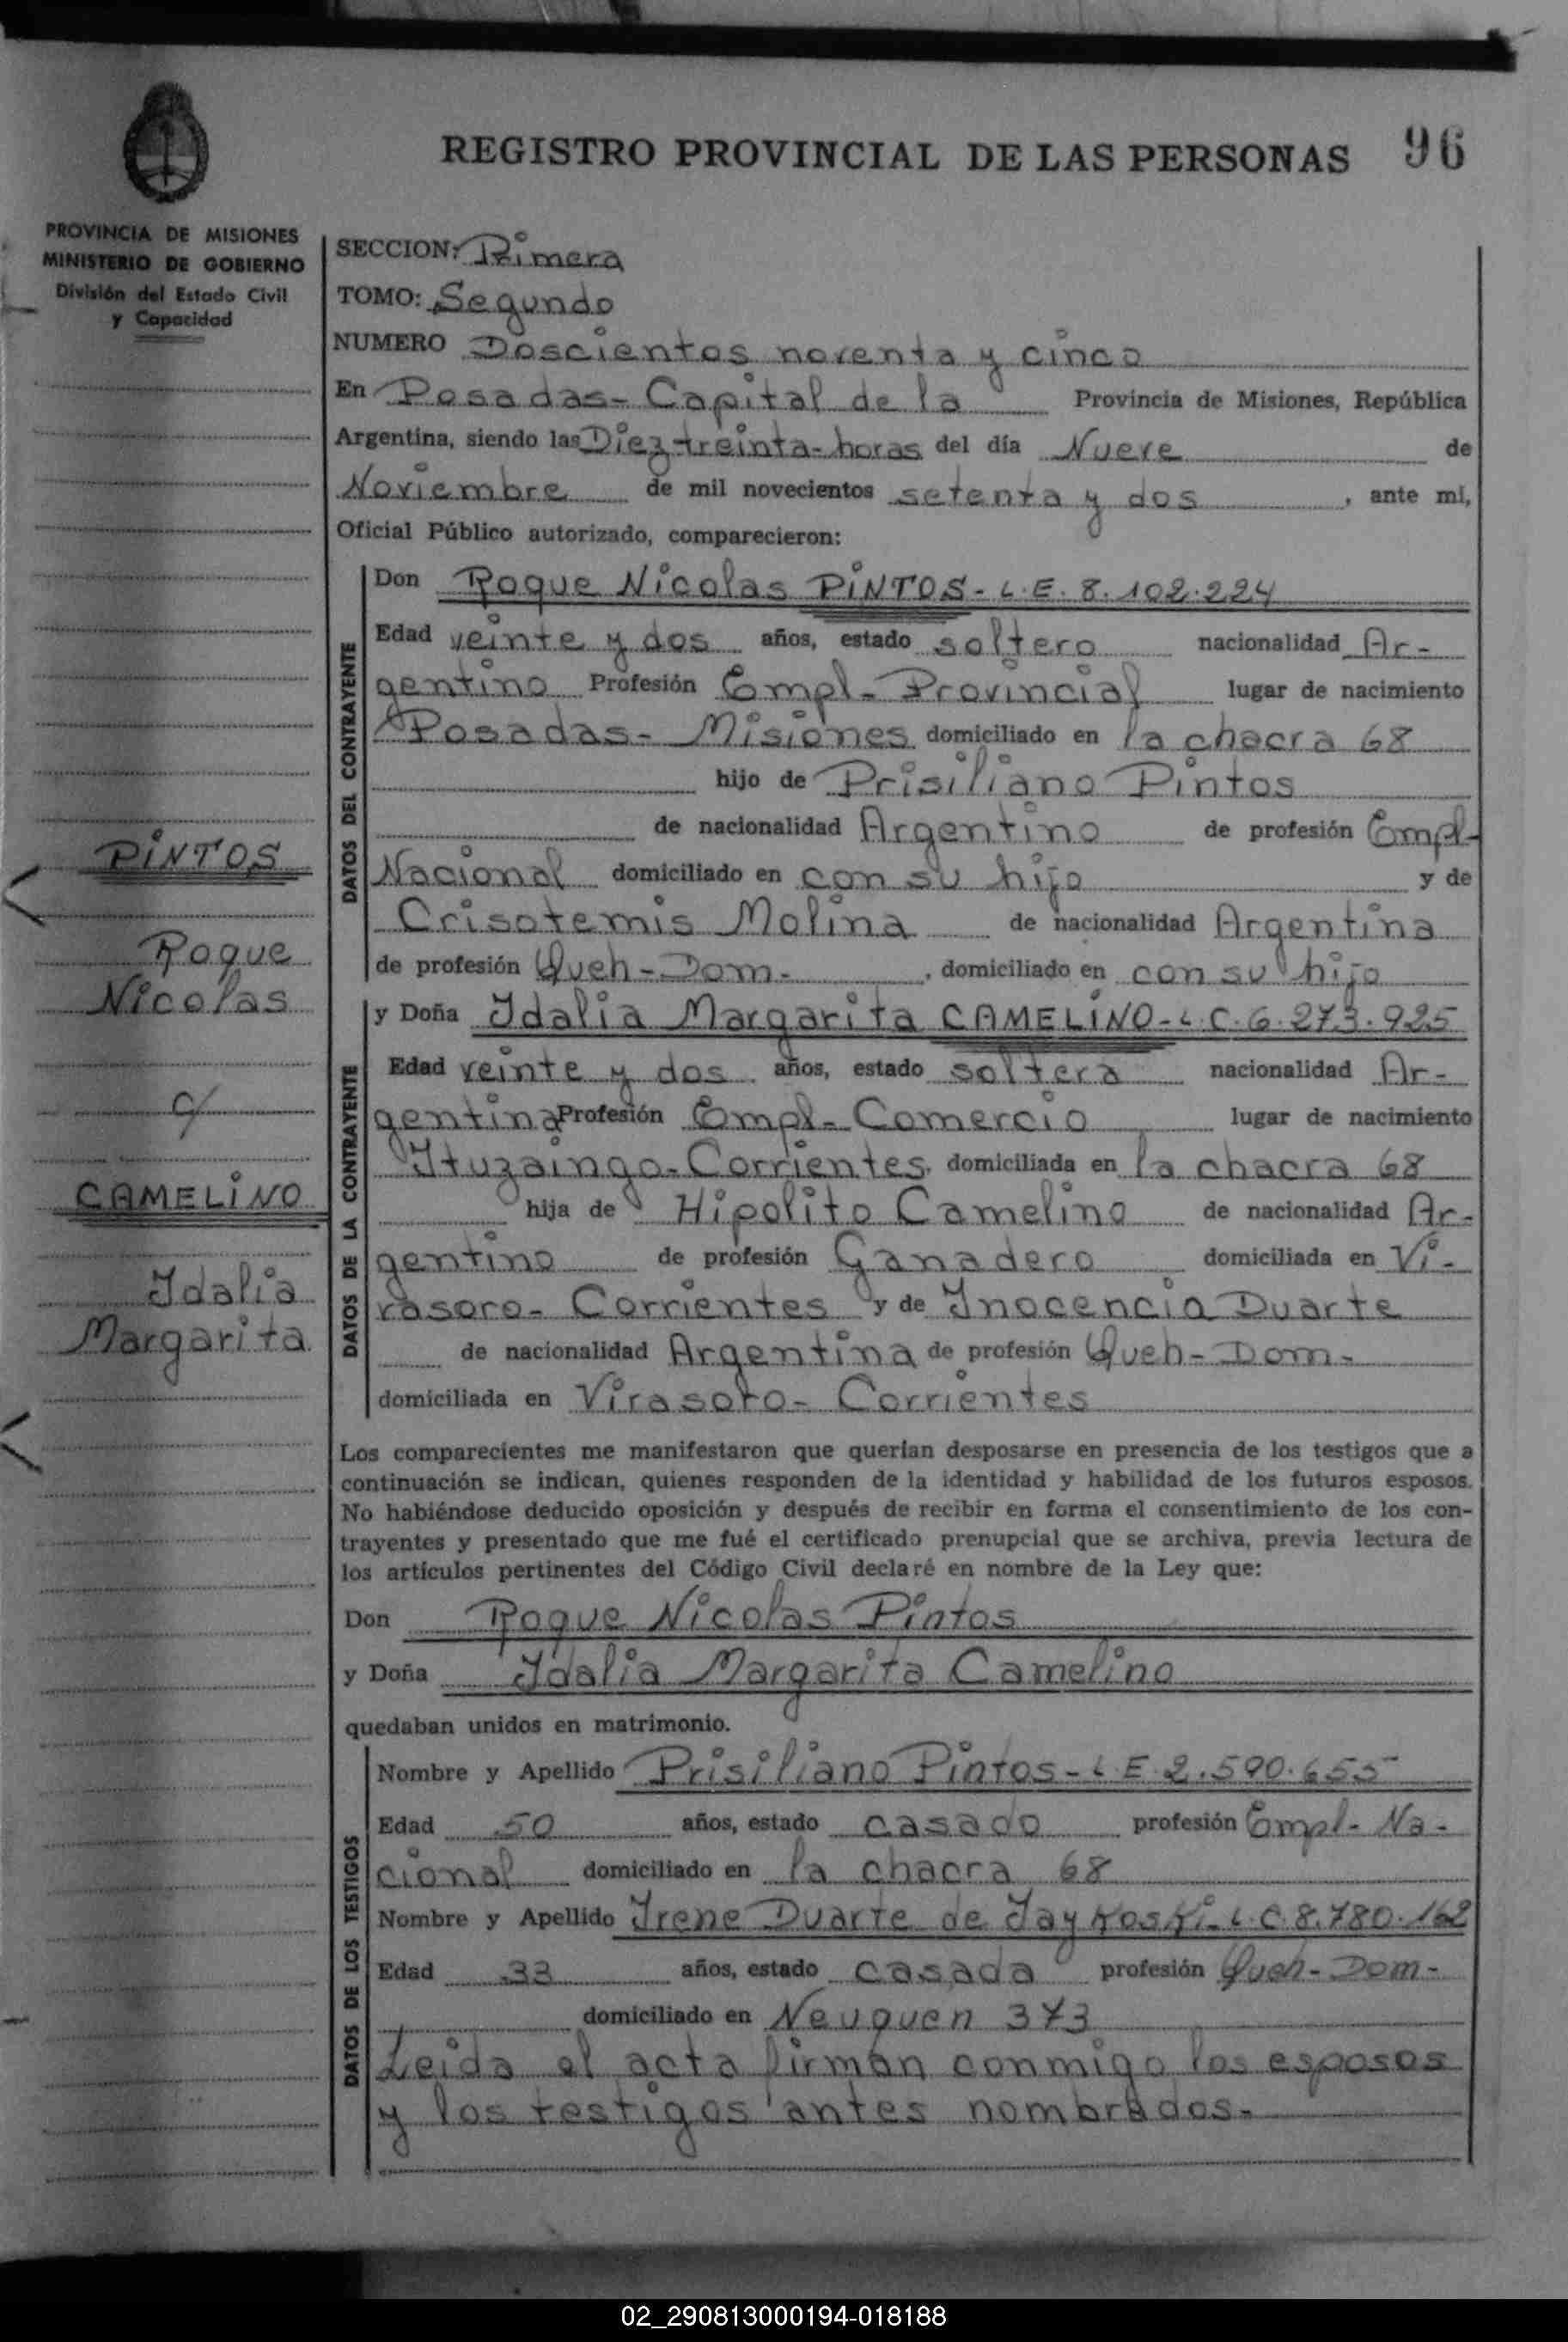 REGISTRO PROVINCIAL DE LAS PERSONAS 96
PROVINCIA DE MISIONES
MINISTERIO DE GOBIERNO
División del Estado Civil
y Capacidad
SECCION: Primera
TOMO: Segundo
NUMERO Doscientos noventa y cinco
En Posadas- Capital de la Provincia de Misiones, República
Argentina, siendo las Diez-treinta-horas del día Nueve de
Noviembre de mil novecientos setenta y dos, ante mí,
Oficial Público autorizado, comparecieron:
DATOS DEL CONTRAYENTE
Don Roque Nicolas PINTOS- L.E. 8.102.224
Edad veinte y dos años, estado soltero nacionalidad Ar-
gentino Profesión Empl- Provincial lugar de nacimiento
Posadas- Misiones domiciliado en la chacra 68
hijo de Prisiliano Pintos
de nacionalidad Argentino de profesión Empl-
Nacional domiciliado en con su hijo y de
Crisotemis Molina de nacionalidad Argentina
de profesión Queh-Dom-, domiciliado en con su hijo
PINTOS
Roque
Nicolas
c/
CAMELINO
Idalia
Margarita
DATOS DE LA CONTRAYENTE
y Doña Idalia Margarita CAMELINO- L.C. 6.273.925
Edad veinte y dos años, estado soltera nacionalidad Ar-
gentina Profesión Empl- Comercio lugar de nacimiento
Ituzaingo- Corrientes, domiciliada en la chacra 68
hija de Hipolito Camelino de nacionalidad Ar-
gentino de profesión Ganadero domiciliada en Vi-
rasoro- Corrientes y de Inocencia Duarte
de nacionalidad Argentina de profesión Queh-Dom-
domiciliada en Virasoro- Corrientes
Los comparecientes me manifestaron que querían desposarse en presencia de los testigos que a
continuación se indican, quienes responden de la identidad y habilidad de los futuros esposos.
No habiéndose deducido oposición y después de recibir en forma el consentimiento de los con-
trayentes y presentado que me fué el certificado prenupcial que se archiva, previa lectura de
los artículos pertinentes del Código Civil declaré en nombre de la Ley que:
Don Roque Nicolas Pintos
y Doña Idalia Margarita Camelino
quedaban unidos en matrimonio.
DATOS DE LOS TESTIGOS
Nombre y Apellido Prisiliano Pintos- L.E. 2.590.655
Edad 50 años, estado casado profesión Empl- Na-
cional domiciliado en la chacra 68
Nombre y Apellido Irene Duarte de Jaykoski- L.C. 8.780.162
Edad 33 años, estado casada profesión Queh-Dom-
domiciliado en Neuquen 373
Leida el acta firman conmigo los esposos
y los testigos antes nombrados-
02_290813000194-018188